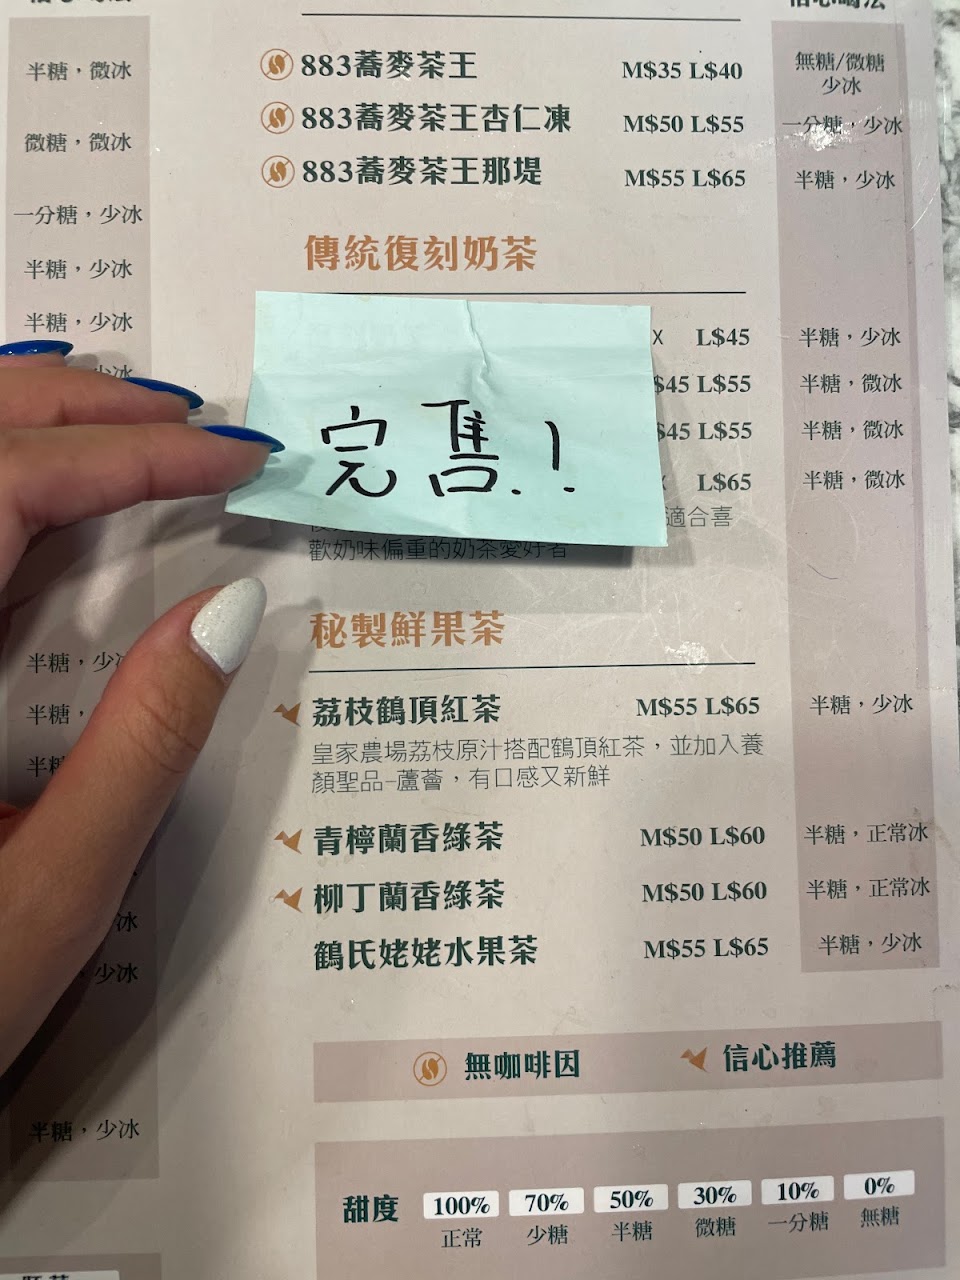 半糖，微冰
微糖，微冰
一分糖，少冰
半糖，少冰
半糖，少冰
少冰
883蕎麥茶王 M$35 L$40 無糖/微糖
少冰
883蕎麥茶王杏仁凍 M$50 L$55 一分糖，少冰
883蕎麥茶王那堤 M$55 L$65 半糖，少冰
傳統復刻奶茶
X L$45 半糖，少冰
$45 L$55 半糖，微冰
$45 L$55 半糖，微冰
L$65 半糖，微冰
完售！
適合喜
歡奶味偏重的奶茶愛好者
秘製鮮果茶
半糖，少
半糖，
半糖
荔枝鶴頂紅茶 M$55 L$65 半糖，少冰
皇家農場荔枝原汁搭配鶴頂紅茶，並加入養
顏聖品-蘆薈，有口感又新鮮
青檸蘭香綠茶 M$50 L$60 半糖，正常冰
柳丁蘭香綠茶 M$50 L$60 半糖，正常冰
冰
鶴氏姥姥水果茶 M$55 L$65 半糖，少冰
少冰
無咖啡因 信心推薦
半糖，少冰
甜度 100% 70% 50% 30% 10% 0%
正常 少糖 半糖 微糖 一分糖 無糖